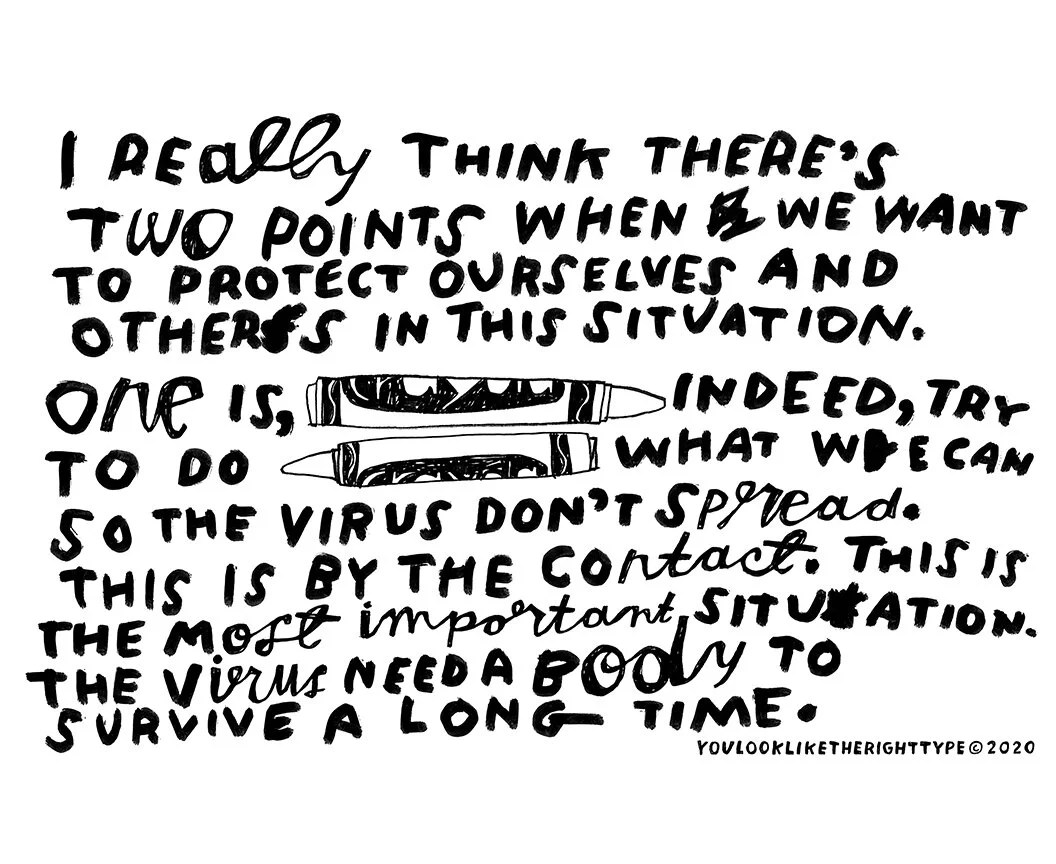 I REally THINK THERE'S
TWO POINTS WHEN WE WANT
TO PROTECT OURSELVES AND
OTHERS IN THIS SITUATION.
One IS, INDEED, TRY
TO DO WHAT WE CAN
SO THE VIRUS DON'T SPread.
THIS IS BY THE COntact. THIS IS
THE Most important SITUATION.
THE Virus NEED A BOdy TO
SURVIVE A LONG TIME.
YOULOOKLIKETHERIGHTTYPE©2020